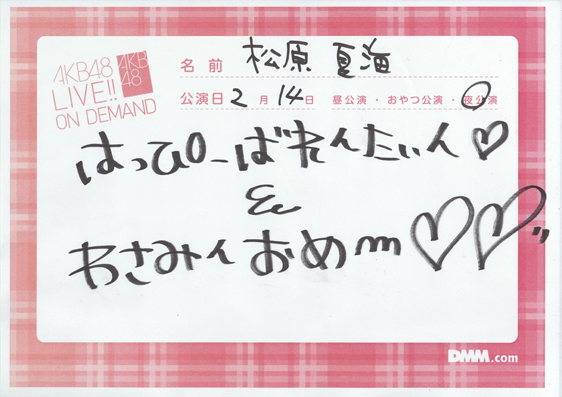 AKB48
LIVE!!
ON DEMAND
AKB
48
名前 松原 夏海
公演日 2月14日 昼公演・おやつ公演・夜公演
はっぴーばれんたいん♡
&
わさみんおめ♡♡
DMM.com